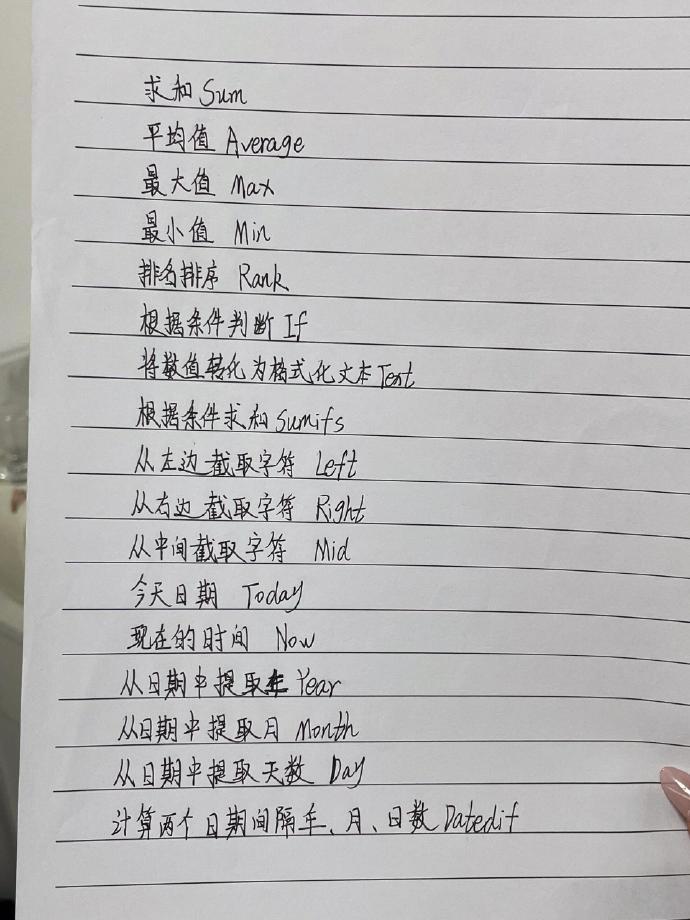 求和 Sum
平均值 Average
最大值 Max
最小值 Min
排名排序 Rank
根据条件判断 If
将数值转化为格式化文本 Text
根据条件求和 Sumifs
从左边截取字符 Left
从右边截取字符 Right
从中间截取字符 Mid
今天日期 Today
现在的时间 Now
从日期中提取年 Year
从日期中提取月 Month
从日期中提取天数 Day
计算两个日期间隔年、月、日数 Datedif